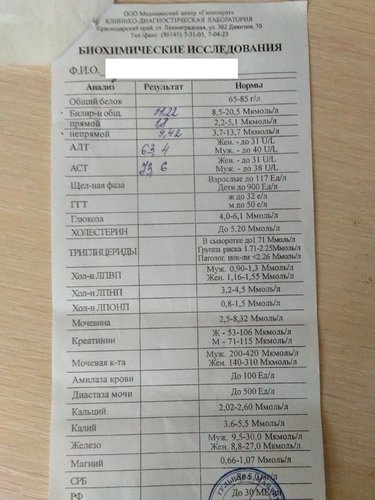 ООО Медицинский центр «Гиппократ»
КЛИНИКО-ДИАГНОСТИЧЕСКАЯ ЛАБОРАТОРИЯ
Краснодарский край, ст Ленинградская, ул. 302 Дивизии, 30
Тел./факс: (86145) 7-31-05, 7-04-23
БИОХИМИЧЕСКИЕ ИССЛЕДОВАНИЯ
Ф.И.О.
Анализ Результат Нормы
Общий белок 65-85 г/л
Билир-н общ. 11.22 8,5-20,5 Мкмоль/л
прямой 1,8 2,2-5,1 Мкмоль/л
непрямой 9,42 3,7-13,7 Мкмоль/л
АЛТ 63,4 Жен. - до 31 U/L
Муж. - до 40 U/L
АСТ 73,6 Жен. - до 31 U/L
Муж. - до 38 U/L
Щел-ная фаза Взрослые до 117 Ед/л
Дети до 900 Ед/л
ГГТ ж до 32 е/л
м до 50 е/л
Глюкоза 4,0-6,1 Ммоль/л
ХОЛЕСТЕРИН До 5.20 Ммоль/л
ТРИГЛИЦЕРИДЫ В сыворотке до1.71 Ммоль/л
Группа риска 1.71-2.25Ммоль/л
Патолог. пок-ли <2.26 Ммоль/л
Хол-н ЛПВП Муж. 0,90-1,3 Ммоль/л
Жен. 1,16-1,55 Ммоль/л
Хол-н ЛПНП 3,2-4,5 Ммоль/л
Хол-н ЛПОНП 0,8-1,5 Ммоль/л
Мочевина 2,5-8,32 Ммоль/л
Креатинин Ж - 53-106 Мкмоль/л
М - 71-115 Мкмоль/л
Мочевая к-та Муж. 200-420 Мкмоль/л
Жен. 140-310 Мкмоль/л
Амилаза крови До 100 Ед/л
Диастаза мочи До 500 Ед/л
Кальций 2,02-2,60 Ммоль/л
Калий 3,6-5,5 Ммоль/л
Железо Муж. 9,5-30,0 Мкмоль/л
Жен. 8,8-27,0 Мкмоль/л
Магний 0,66-1,07 Ммоль/л
СРБ
РФ До 30 МЕ/